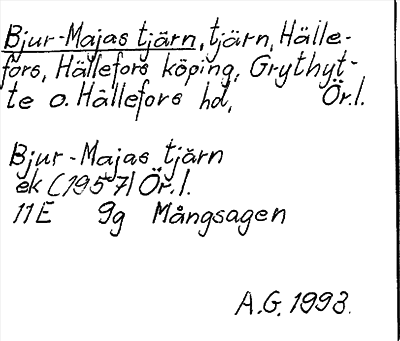 Bjur-Majas tjärn, tjärn, Hälle-
fors, Hällefors köping, Grythyt-
te o. Hällefors hd, Ör.l.
Bjur-Majas tjärn
ek (1957) Ör.l.
11E 9g Mångsagen
A.G. 1993.